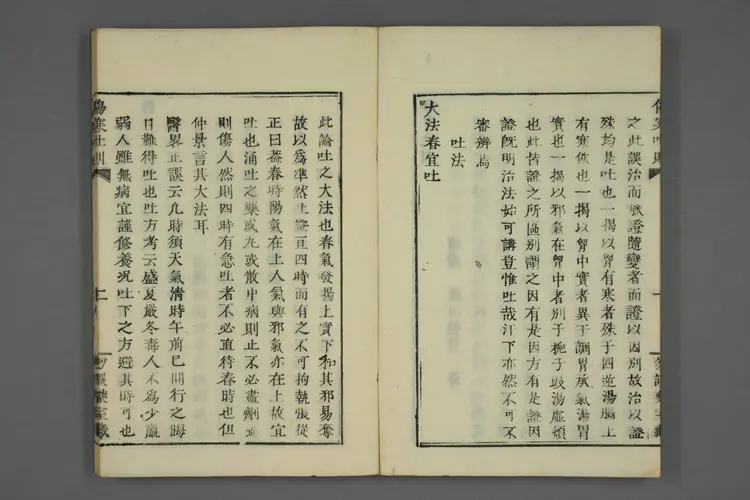 之此誤治而壞證隨變者而證以因別故治以證
殊均是吐也一揭以胷有寒者殊于四逆湯膈上
有寒飲也一揭以胷中實者異于調胃承氣湯胃
實也一揭以邪氣在胷中者別于梔子豉湯虛煩
也此皆證之所區別謂之因方有是因方有是證因
證既明治法始可講豈惟吐哉汗下亦然不可不
審辨焉
吐法
大法春宜吐
此論吐之大法也春氣發揚上實下和其邪易奪
故以爲準然上證亘四時而有之不可拘執張從
正曰蓋春時陽氣在上人氣與邪氣亦在上故宜
吐也涌吐之藥或丸或散中病則止不必盡劑過
則傷人然則四時有急吐者不必直待春時也但
仲景言其大法耳
醫畧正誤云凡時須天氣清時午前巳間行之晦
日難得吐也吐方考云盛夏嚴冬毒人不爲少羸
弱人雖無病宜謹修養况吐下之方避其時可也
傷寒吐則